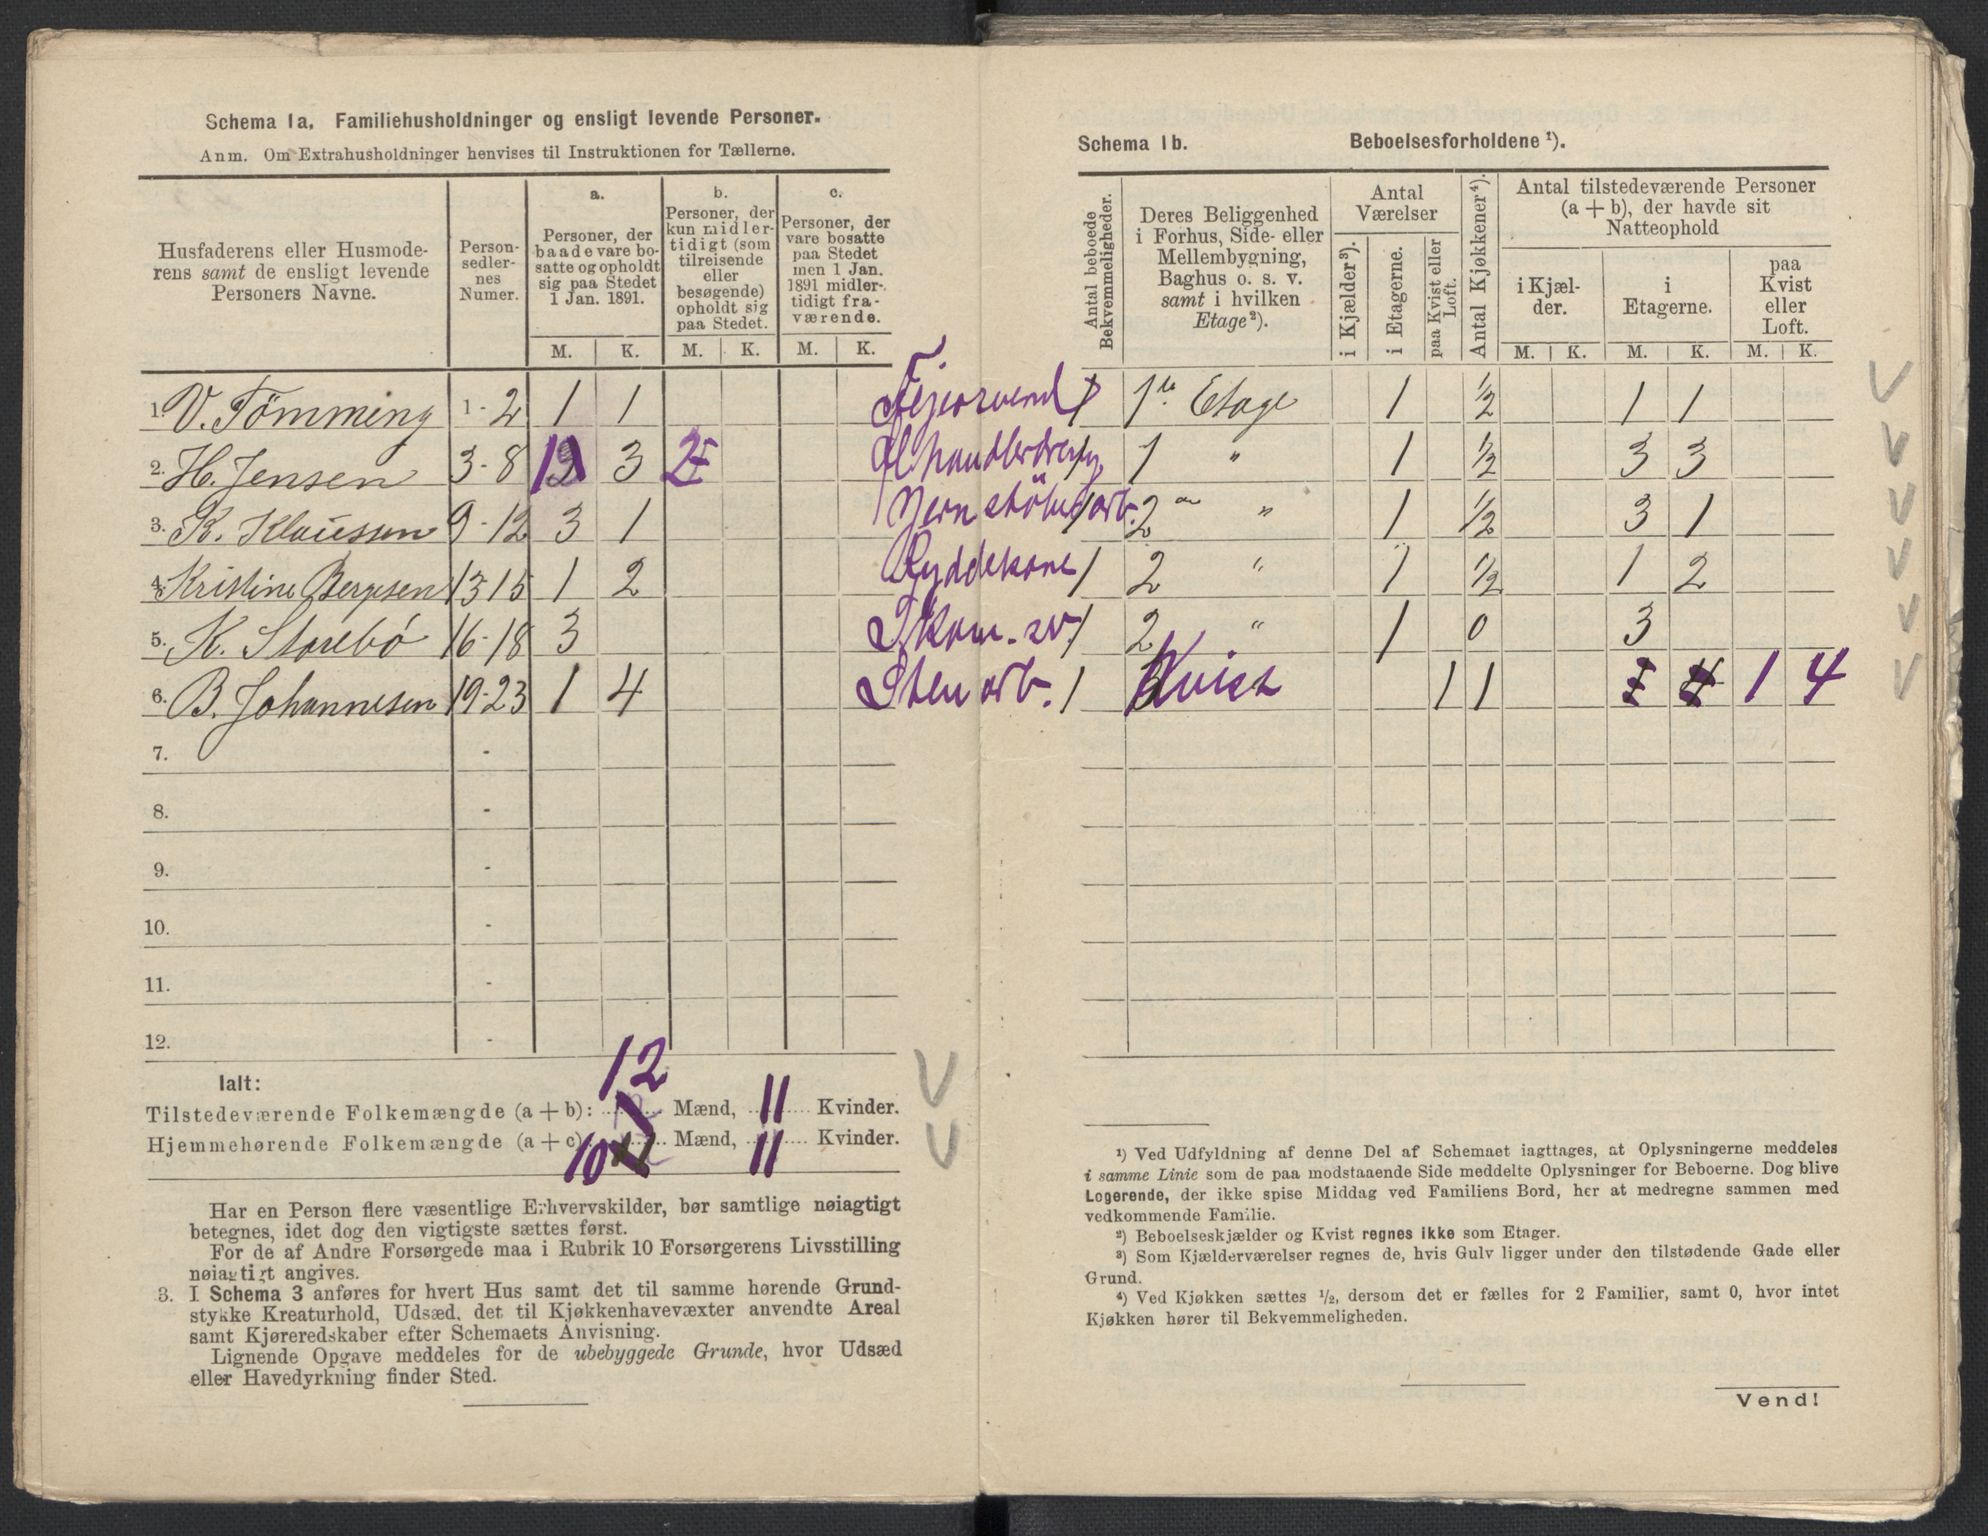 Schema 1a. Familiehusholdninger og ensligt levende Personer.
Anm. Om Extrahusholdninger henvises til Instruktionen for Tællerne.
Husfaderens eller Husmoderens samt de ensligt levende Personers Navne.
Personsedlernes Numer.
a.
Personer, der baade vare bosatte og opholdt sig paa Stedet 1 Jan. 1891.
b.
Personer, der kun midlertidigt (som tilreisende eller besøgende) opholdt sig paa Stedet.
c.
Personer, der vare bosatte paa Stedet men 1 Jan. 1891 midlertidigt fraværende.
M. K. M. K. M. K.
1. V. Tömming 1-2 1 1
2. H. Jensen 3-8 1 3 2
3. K. Klaussen 9-12 3 1
4. Kristine Bergesen 13-15 1 2
5. K. Storebö 16-18 3
6. B. Johannesen 19-23 1 4
7. -
8. -
9. -
10. -
11. -
12. -
Ialt:
12
Tilstedeværende Folkemængde (a + b): Mænd, 11 Kvinder.
Hjemmehørende Folkemængde (a + c): 10 Mænd, 11 Kvinder.
Har en Person flere væsentlige Erhvervskilder, bør samtlige nøiagtigt
betegnes, idet dog den vigtigste sættes først.
For de af Andre Forsørgede maa i Rubrik 10 Forsørgerens Livsstilling
nøiagtigt angives.
3. I Schema 3 anføres for hvert Hus samt det til samme hørende Grund-
stykke Kreaturhold, Udsæd, det til Kjøkkenhavevæxter anvendte Areal
samt Kjøreredskaber efter Schemaets Anvisning.
Lignende Opgave meddeles for de ubebyggede Grunde, hvor Udsæd
eller Havedyrkning finder Sted.
Schema 1b. Beboelsesforholdene ¹).
Antal beboede Bekvemmeligheder.
Deres Beliggenhed i Forhus, Side- eller Mellembygning, Baghus o. s. v. samt i hvilken Etage²).
Antal Værelser
i Kjælder³).
i Etagerne.
paa Kvist eller Loft.
Antal Kjøkkener⁴).
Antal tilstedeværende Personer (a + b), der havde sit Natteophold
i Kjælder.
i Etagerne.
paa Kvist eller Loft.
M. K. M. K. M. K.
Fejersvend 1 1ste Etage 1 ½ 1 1
1 1 " 1 ½ 3 3
1 2 " 1 ½ 3 1
Ryddekone 1 2 " 1 ½ 1 2
1 2 " 1 0 3
Stenarb. 1 Kvist 1 1 1 4 1 4
¹) Ved Udfyldning af denne Del af Schemaet iagttages, at Oplysningerne meddeles
i samme Linie som de paa modstaaende Side meddelte Oplysninger for Beboerne. Dog blive
Logerende, der ikke spise Middag ved Familiens Bord, her at medregne sammen med
vedkommende Familie.
²) Beboelseskjælder og Kvist regnes ikke som Etager.
³) Som Kjælderværelser regnes de, hvis Gulv ligger under den tilstødende Gade eller
Grund.
⁴) Ved Kjøkken sættes ½, dersom det er fælles for 2 Familier, samt 0, hvor intet
Kjøkken hører til Bekvemmeligheden.
Vend!